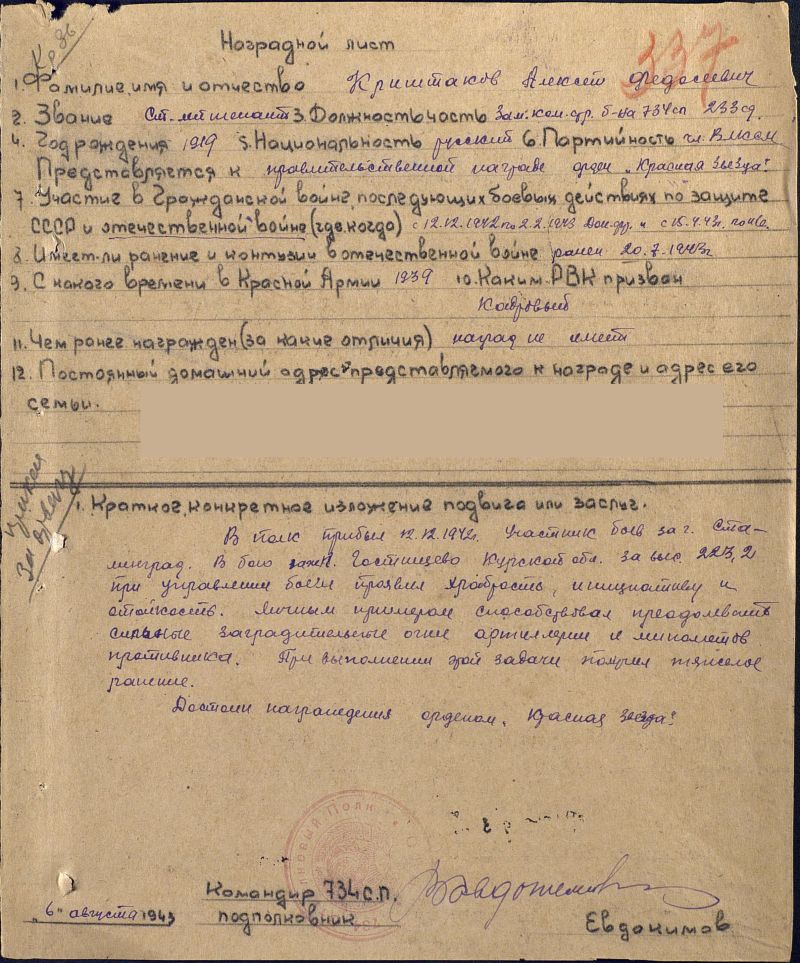 Кр.Зв
337
Наградной лист
1. Фамилие, имя и отчество Криштаков Алексей Федосеевич
2. Звание Ст. лейтенант 3. Должность, часть Зам. ком-др. б-на 734 сп 233 сд.
4. Год рождения 1919 5. Национальность русский 6. Партийность чл. ВЛКСМ
Представляется к правительственной награде орден „Красная Звезда"
7. Участие в Гражданской войне, последующих боевых действиях по защите
СССР и отечественной войне (где, когда) с 12.12.1942 по 2.2.1943 Дон. фр. и с 15.4.43г.
8. Имеет-ли ранение и контузии в отечественной войне ранен 20.7.1943г
9. С какого времени в Красной Армии 1939 10. Каким РВК призван
Кадровый
11. Чем ранее награжден (за какие отличия) наград не имеет
12. Постоянный домашний адрес представляемого к награде и адрес его
семьи.
1. Краткое, конкретное изложение подвига или заслуг.
В полк прибыл 12.12.1942г. Участник боев за г. Ста-
линград. В бою Гостищево Курской обл. за выс. 223,2
при управлении боем проявил храбрость, инициативу и
стойкость. Личным примером способствовал преодолевать
сильные заградительные огни артиллерии и минометов
противника. При выполнении этой задачи получил тяжелое
ранение.
Достоин награждения орденом „Красная Звезда"
Командир 734 с.п.
„6" августа 1943 подполковник Евдокимов